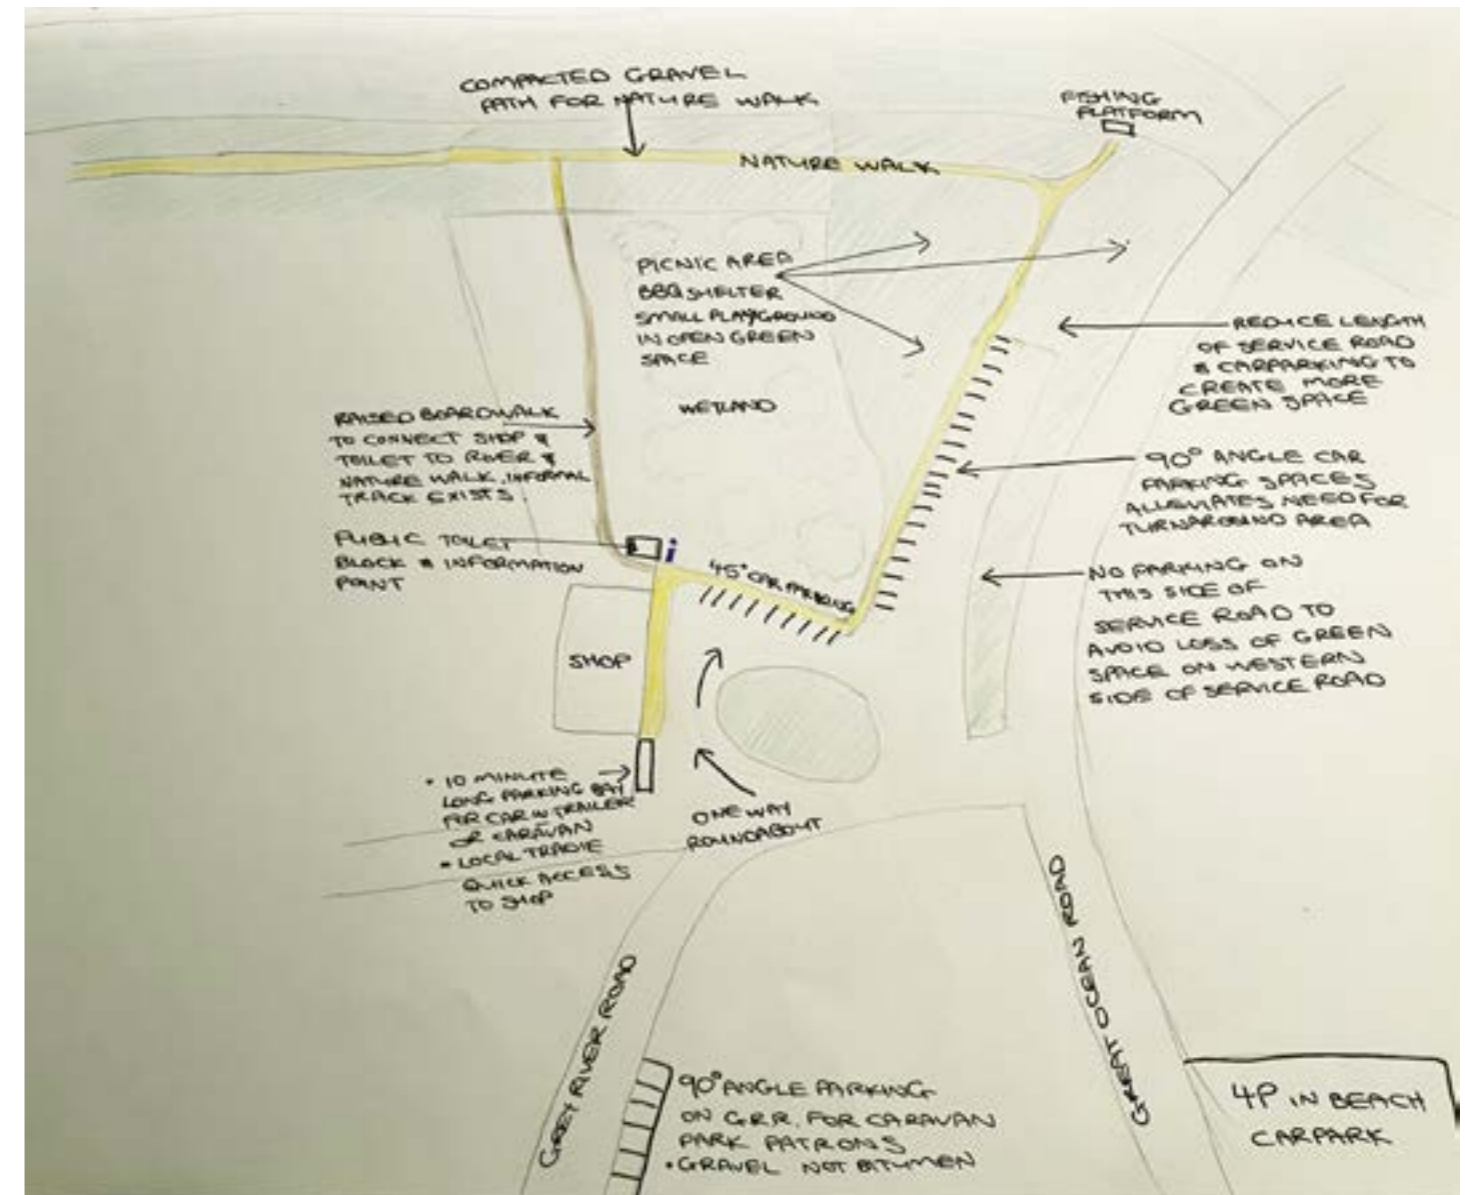 COMPACTED GRAVEL
PATH FOR NATURE WALK
FISHING
PLATFORM
NATURE WALK
PICNIC AREA
BBQ SHELTER
SMALL PLAYGROUND
IN OPEN GREEN
SPACE
WETLAND
REDUCE LENGTH
OF SERVICE ROAD
& CARPARKING TO
CREATE MORE
GREEN SPACE
RAISED BOARDWALK
TO CONNECT SHOP &
TOILET TO RIVER &
NATURE WALK, INFORMAL
TRACK EXISTS.
90° ANGLE CAR
PARKING SPACES
ALLEVIATES NEED FOR
TURNAROUND AREA
PUBLIC TOILET
BLOCK & INFORMATION
POINT
i
45° CAR PARKING
NO PARKING ON
THIS SIDE OF
SERVICE ROAD TO
AVOID LOSS OF GREEN
SPACE ON WESTERN
SIDE OF SERVICE ROAD
SHOP
• 10 MINUTE
LONG PARKING BAY
FOR CAR W TRAILER
OR CARAVAN
• LOCAL TRADIE
QUICK ACCESS
TO SHOP
ONE WAY
ROUNDABOUT
GREY RIVER ROAD
GREAT OCEAN ROAD
90° ANGLE PARKING
ON G.R.R. FOR CARAVAN
PARK PATRONS
• GRAVEL NOT BITUMEN
4P IN BEACH
CARPARK